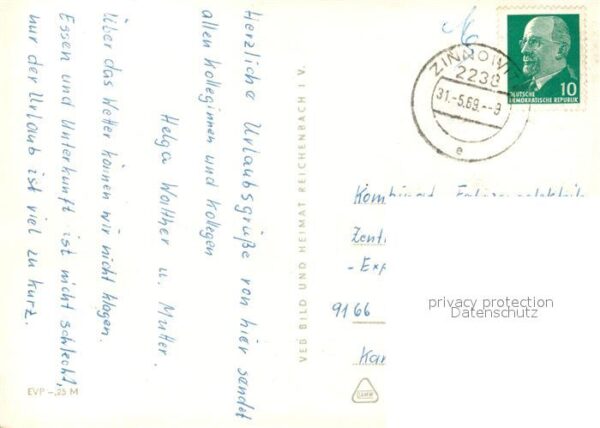 Herzliche Urlaubsgrüße von hier sendet
allen Kolleginnen und Kollegen
Helga Walther u. Mutter.
Über das Wetter können wir nicht klagen.
Essen und Unterkunft ist nicht schlecht,
nur der Urlaub ist viel zu kurz.
EVP -,25 M
VEB BILD UND HEIMAT REICHENBACH I V.
ZINNOWI
2238
31.-5.69.--9
e
10
DEUTSCHE
DEMOKRATISCHE REPUBLIK
Kombinat
Zent
- Exp
9166
Kar
privacy protection
Datenschutz